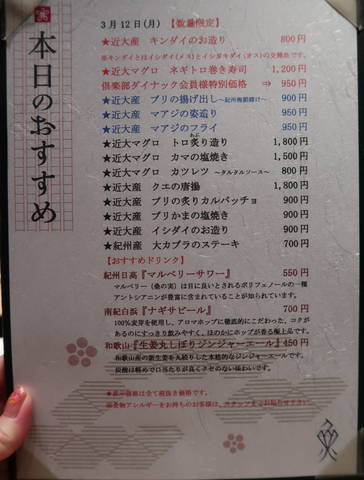 本日のおすすめ
3月12日(月)【数量限定】
★近大産 キンダイのお造り 800円
※キンダイとはイシダイ(メス)とイシガキダイ(オス)の交雑魚です。
★近大マグロ ネギトロ巻き寿司 1,200円
倶楽部ダイナック会員様特別価格 ⇒ 950円
★近大産 ブリの揚げ出し～紀州梅餡掛け～ 900円
★近大産 マアジの姿造り 950円
★近大産 マアジのフライ 950円
★近大マグロ トロ炙り造り 1,800円
★近大マグロ カマの塩焼き 1,500円
★近大マグロ カツレツ ～タルタルソース～ 800円
★近大産 クエの唐揚 1,800円
★近大産 ブリの炙りカルパッチョ 900円
★近大産 ブリかまの塩焼き 900円
★近大産 イシダイのお造り 900円
★紀州産 大カブラのステーキ 700円
【おすすめドリンク】
紀州日高『マルベリーサワー』 550円
マルベリー(桑の実)は目に良いとされるポリフェノールの一種
アントシアニンが豊富に含まれていることが知られています。
南紀白浜『ナギサビール』 700円
100%麦芽を使用し、アロマホップに徹底的にこだわった、コクが
あるのにすっきり飲みやすく、ほのかにホップが香る極上品です。
和歌山『生姜丸しぼりジンジャーエール』450円
和歌山産の新生姜を丸絞りした本格的なジンジャーエールです。
炭酸は軽めで口当たりが良くクセのない味わいです。
★表示価格は全て税抜き価格です。
※食物アレルギーをお持ちのお客様は、スタッフまでお知らせ下さい。